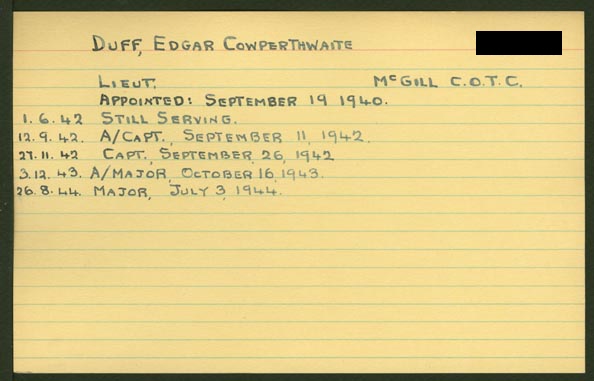 DUFF, EDGAR COWPERTHWAITE
LIEUT. McGILL C.O.T.C.
APPOINTED: SEPTEMBER 19 1940.
1.6.42 STILL SERVING.
12.9.42. A/CAPT., SEPTEMBER 11, 1942.
27.11.42 CAPT., SEPTEMBER 26, 1942
3.12.43. A/MAJOR, OCTOBER 16, 1943.
26.8.44. MAJOR, JULY 3, 1944.